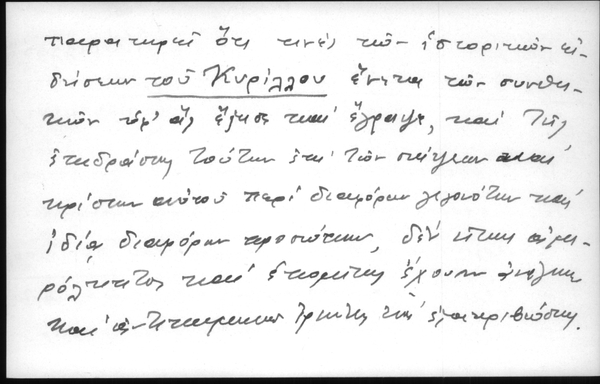 παρατηρεῖ ὅτι τινὲς τῶν ἱστορικῶν εἰ-
δήσεων τοῦ Κυρίλλου ἕνεκα τῶν συνθη-
κῶν ὑφ' ἃς ἔζησε καὶ ἔγραψε, καὶ τῆς
ἐπιδράσεως τούτων ἐπὶ τῶν σκέψεων καὶ
κρίσεων αὐτοῦ περὶ διαφόρων γεγονότων καὶ
ἰδίᾳ διαφόρων προσώπων, δὲν εἶναι ἀμε-
ρόληπτος καὶ ἑπομένως ἔχουν ἀνάγκην
καὶ ἀντικειμενικῆς ἐρεύνης καὶ ἐξακριβώσεως.